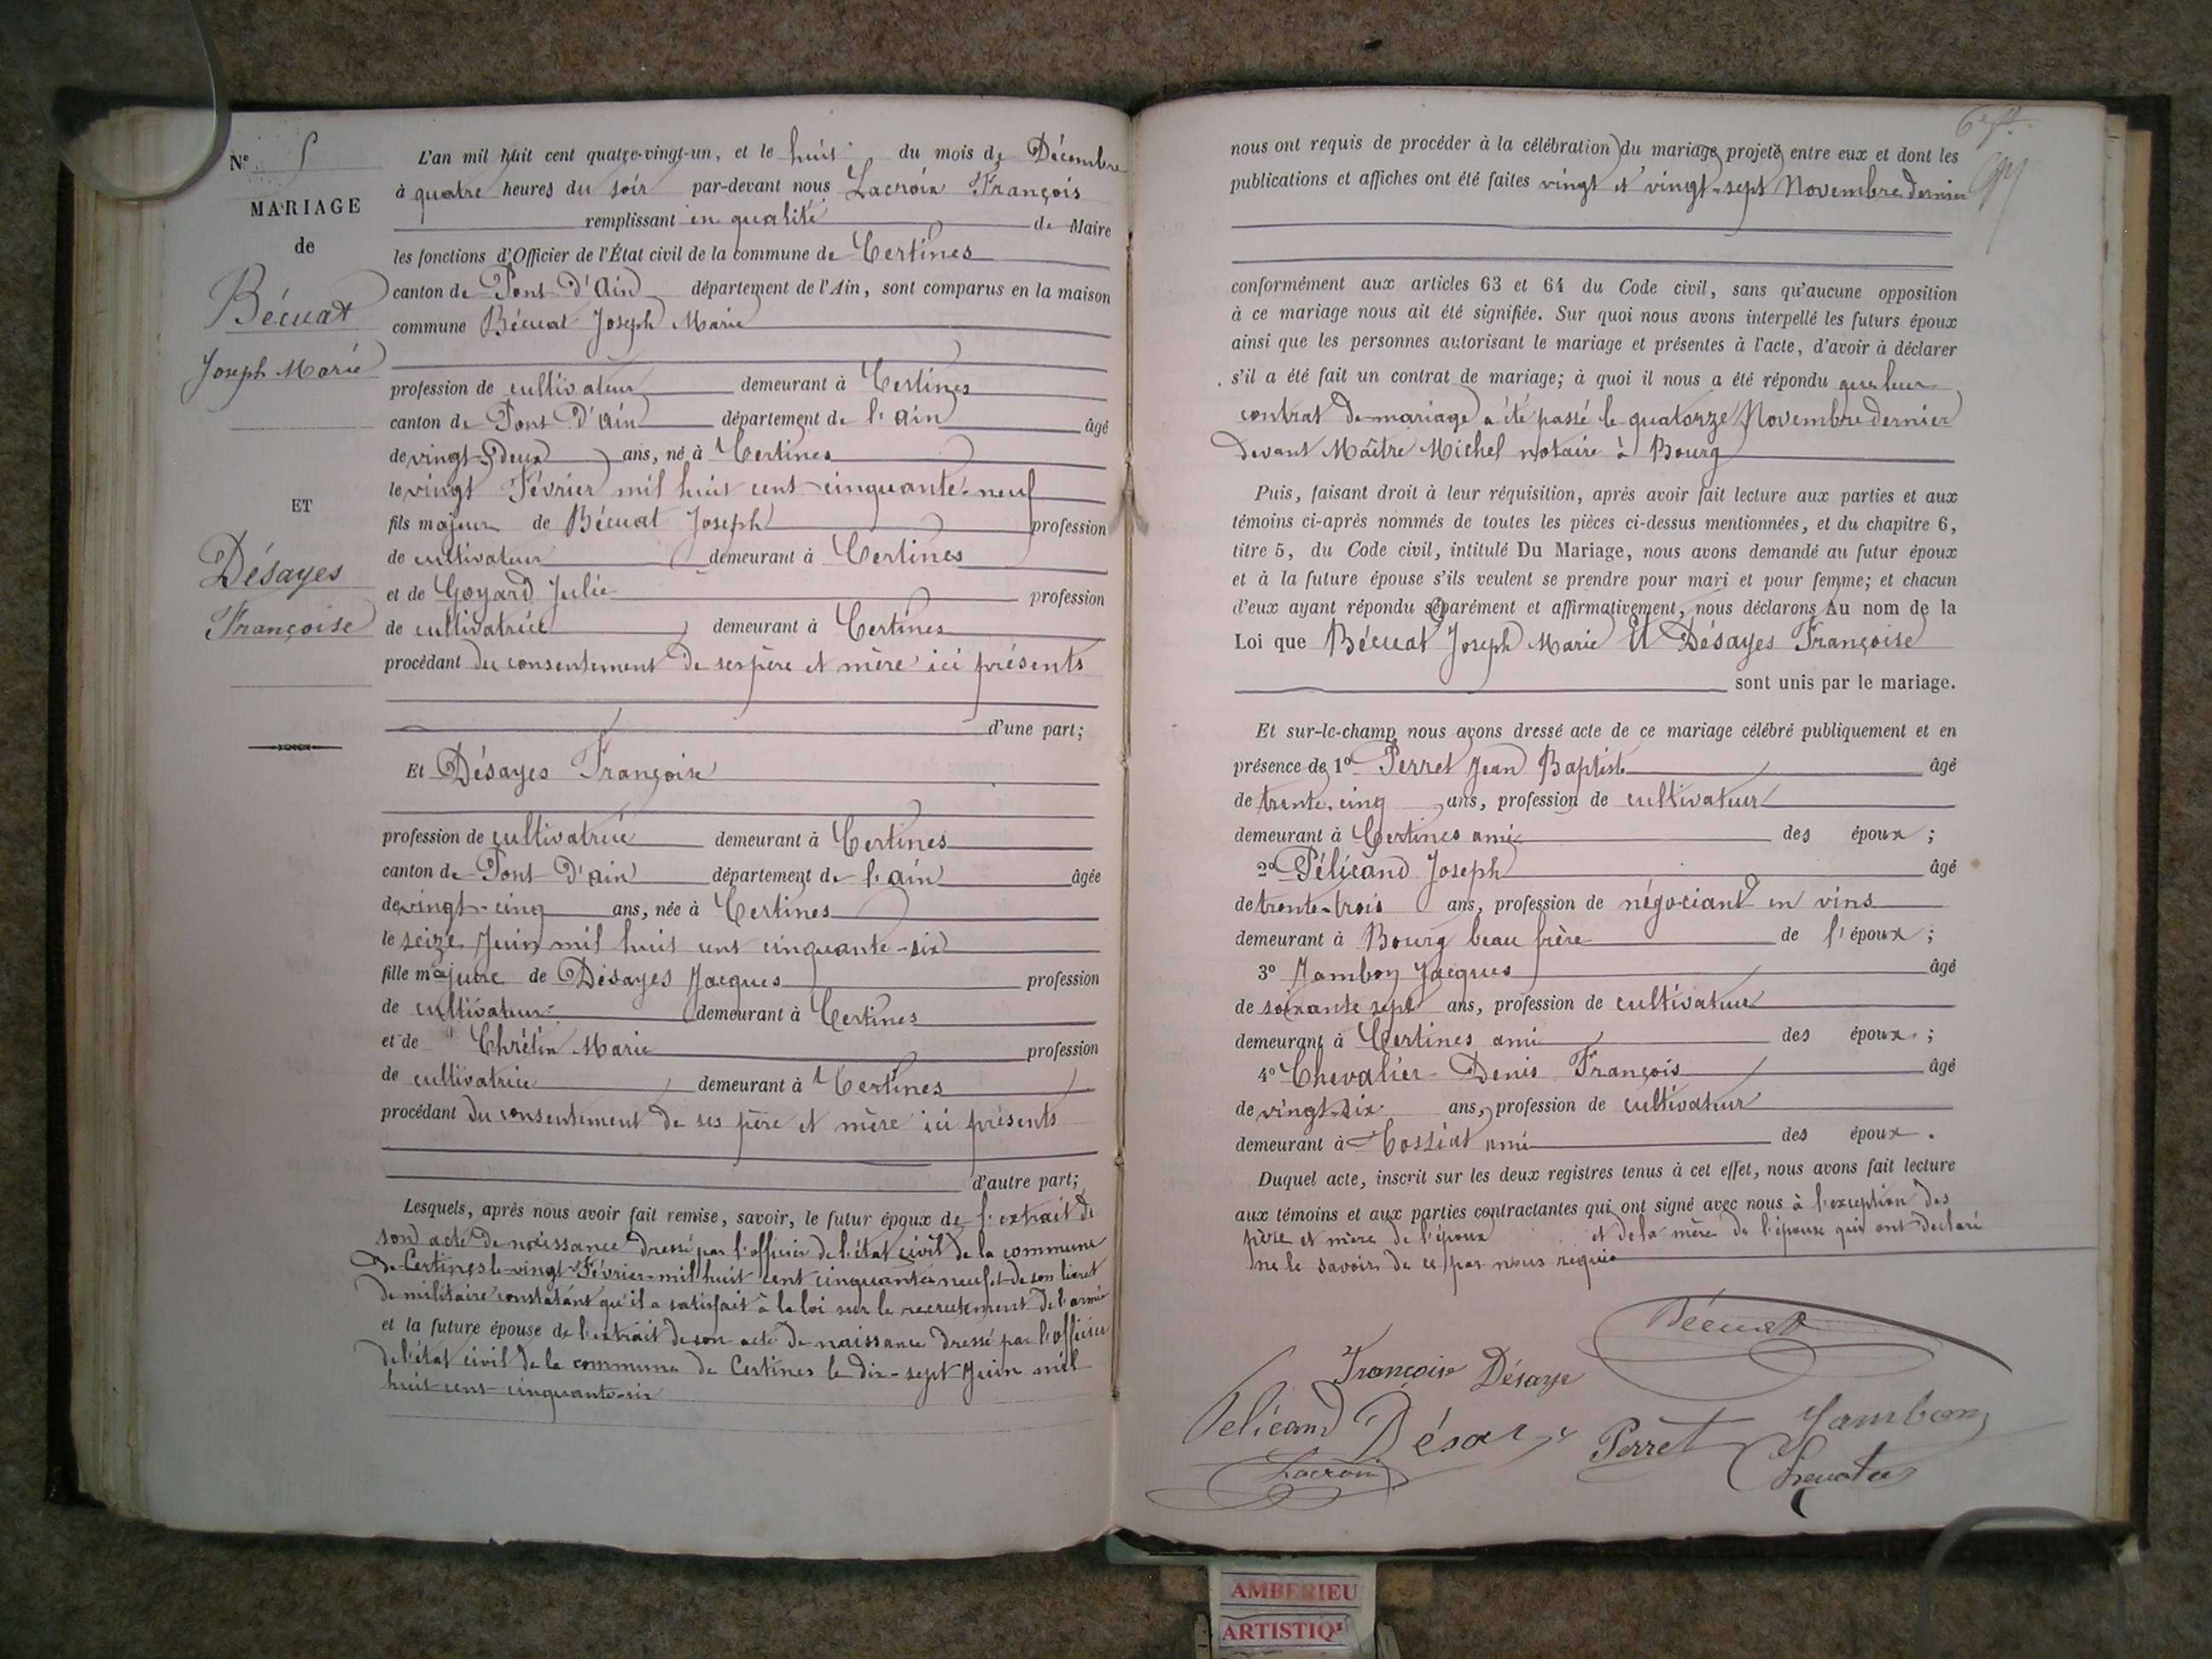 Nº 5
MARIAGE
de
Bécuat
Joseph Marie
ET
Désayes
Françoise
L'an mil huit cent quatre-vingt-un, et le huit du mois de Décembre
à quatre heures du soir par-devant nous Lacroix François
remplissant en qualité de Maire
les fonctions d'Officier de l'État civil de la commune de Certines
canton de Pont d'Ain département de l'Ain, sont comparus en la maison
commune Bécuat Joseph Marie
profession de cultivateur demeurant à Certines
canton de Pont d'Ain département de l'ain âgé
de vingt-deux ans, né à Certines
le vingt Février mil huit cent cinquante-neuf
fils majeur de Bécuat Joseph profession
de cultivateur demeurant à Certines
et de Goyard Julie profession
de cultivatrice demeurant à Certines
procédant du consentement de ses père et mère ici présents
d'une part;
Et Désayes Françoise
profession de cultivatrice demeurant à Certines
canton de Pont d'ain département de l'ain âgée
de vingt-cinq ans, née à Certines
le seize Juin mil huit cent cinquante-six
fille majeure de Désayes Jacques profession
de cultivateur demeurant à Certines
et de Chrétin Marie profession
de cultivatrice demeurant à Certines
procédant du consentement de ses père et mère ici présents
d'autre part;
Lesquels, après nous avoir fait remise, savoir, le futur époux de l'extrait de
son acte de naissance dressé par l'officier de l'état civil de la commune
de Certines le vingt Février mil huit cent cinquante neuf et de son livret
de militaire constatant qu'il a satisfait à la loi sur le recrutement de l'armée
et la future épouse de l'extrait de son acte de naissance dressé par l'officier
de l'état civil de la commune de Certines le dix-sept Juin mil
huit cent cinquante-six
nous ont requis de procéder à la célébration du mariage projeté entre eux et dont les
publications et affiches ont été faites vingt et vingt-sept Novembre dernier
conformément aux articles 63 et 64 du Code civil, sans qu'aucune opposition
à ce mariage nous ait été signifiée. Sur quoi nous avons interpellé les futurs époux
ainsi que les personnes autorisant le mariage et présentes à l'acte, d'avoir à déclarer
s'il a été fait un contrat de mariage; à quoi il nous a été répondu que leur
contrat de mariage a été passé le quatorze Novembre dernier
devant Maître Michel notaire à Bourg
Puis, faisant droit à leur réquisition, après avoir fait lecture aux parties et aux
témoins ci-après nommés de toutes les pièces ci-dessus mentionnées, et du chapitre 6,
titre 5, du Code civil, intitulé Du Mariage, nous avons demandé au futur époux
et à la future épouse s'ils veulent se prendre pour mari et pour femme; et chacun
d'eux ayant répondu séparément et affirmativement, nous déclarons Au nom de la
Loi que Bécuat Joseph Marie Et Désayes Françoise
sont unis par le mariage.
Et sur-le-champ nous avons dressé acte de ce mariage célébré publiquement et en
présence de 1º Perret Jean Baptiste âgé
de trente-cinq ans, profession de cultivateur
demeurant à Certines ami des époux;
2º Pélicand Joseph âgé
de trente-trois ans, profession de négociant en vins
demeurant à Bourg beau frère de l'époux;
3º Jambon Jacques âgé
de soixante sept ans, profession de cultivateur
demeurant à Certines ami des époux;
4º Chevalier Denis François âgé
de vingt-six ans, profession de cultivateur
demeurant à Tossiat ami des époux.
Duquel acte, inscrit sur les deux registres tenus à cet effet, nous avons fait lecture
aux témoins et aux parties contractantes qui ont signé avec nous à l'exception des
père et mère de l'époux et de la mère de l'épouse qui ont déclaré
ne le savoir de ce par nous requis
Bécuat
Françoise Désaye
Pelicand Désaye Perret Jambon
Lacroix
AMBERIEU
ARTISTIQ